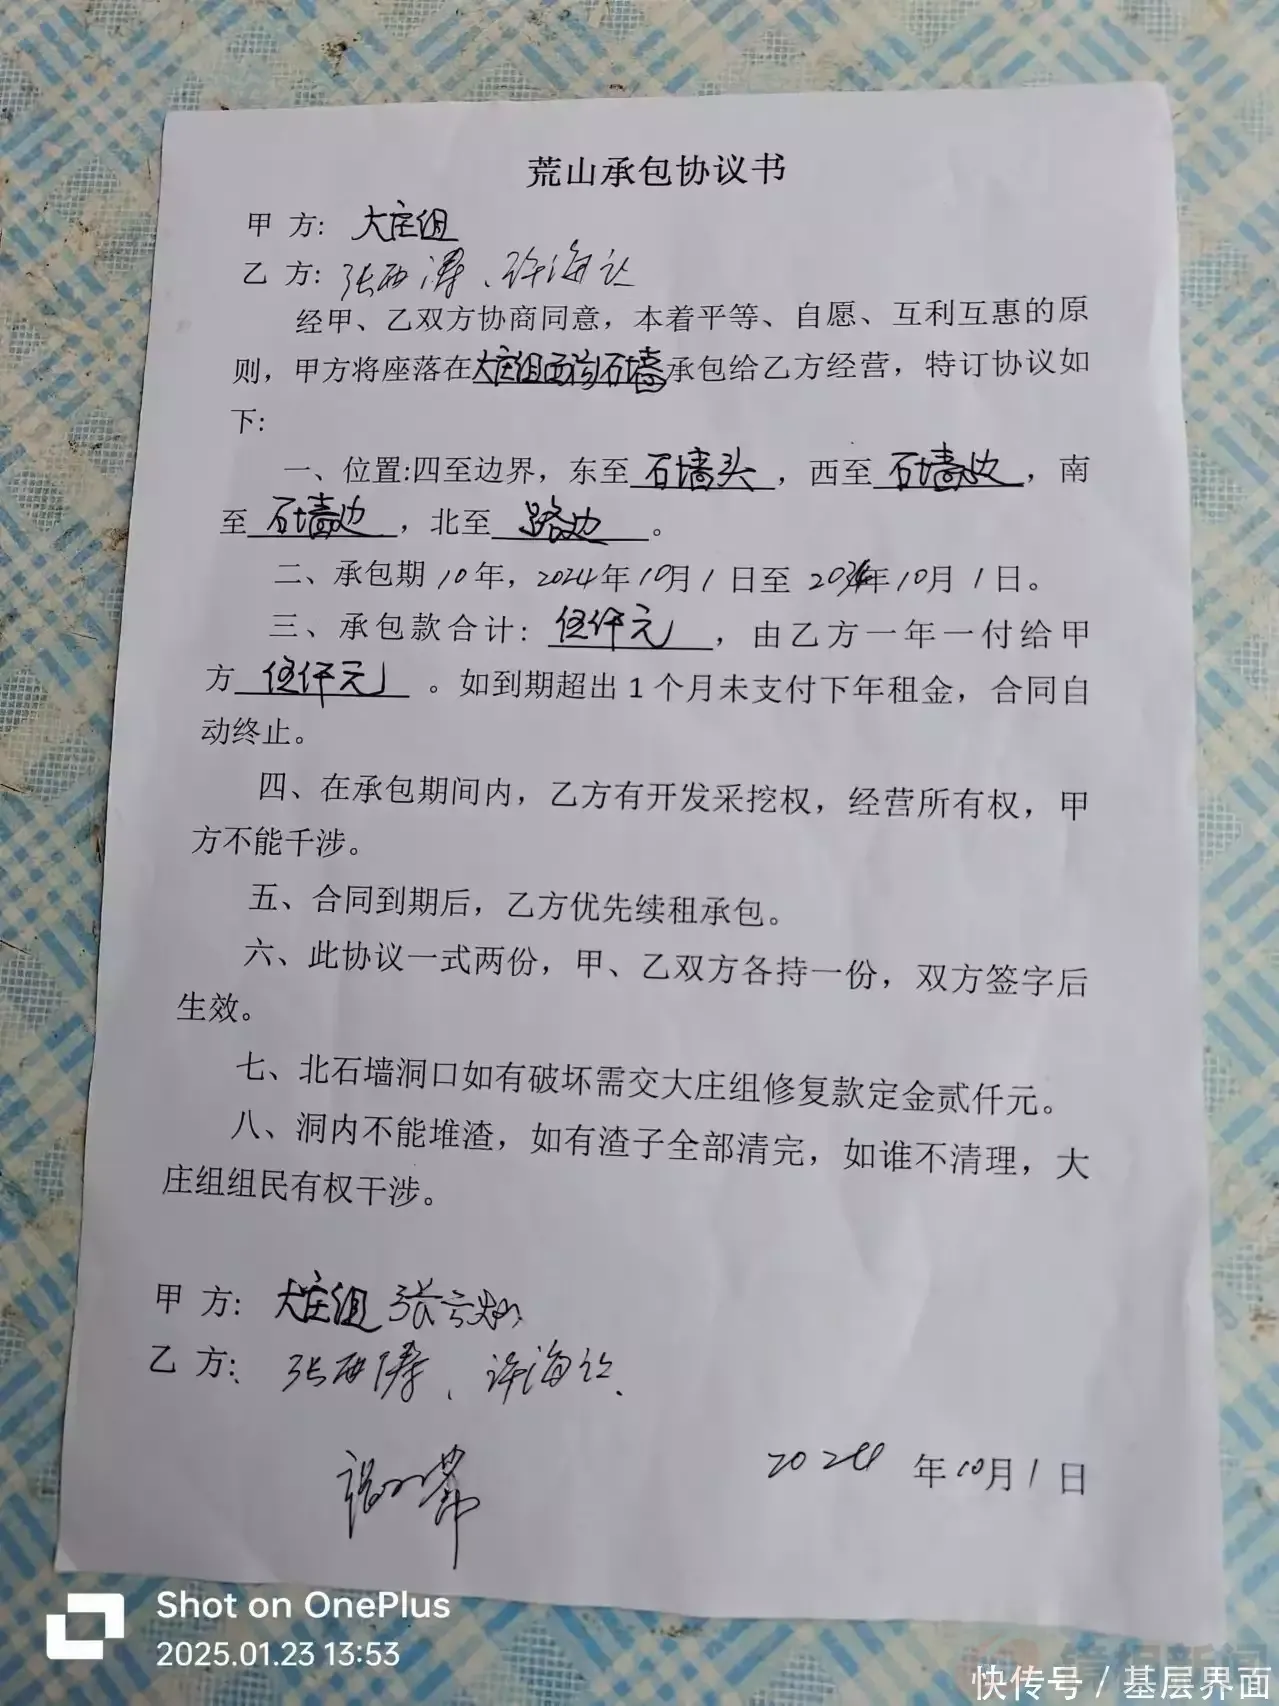 荒山承包协议书
甲 方: 大庄组
乙 方: 张西涛、许海
经甲、乙双方协商同意，本着平等、自愿、互利互惠的原
则，甲方将座落在大庄组西沟石墙承包给乙方经营，特订协议如
下:
一、位置:四至边界，东至石墙头，西至石墙边，南
至石墙边，北至路边。
二、承包期10年，2024年10月1日至2034年10月1日。
三、承包款合计: 伍仟元，由乙方一年一付给甲
方伍仟元。如到期超出1个月未支付下年租金，合同自
动终止。
四、在承包期间内，乙方有开发采挖权，经营所有权，甲
方不能干涉。
五、合同到期后，乙方优先续租承包。
六、此协议一式两份，甲、乙双方各持一份，双方签字后
生效。
七、北石墙洞口如有破坏需交大庄组修复款定金贰仟元。
八、洞内不能堆渣，如有渣子全部清完，如谁不清理，大
庄组组民有权干涉。
甲 方: 大庄组 张
乙 方: 张西涛、许海
2024年10月1日
Shot on OnePlus
2025.01.23 13:53
快传号 / 基层界面